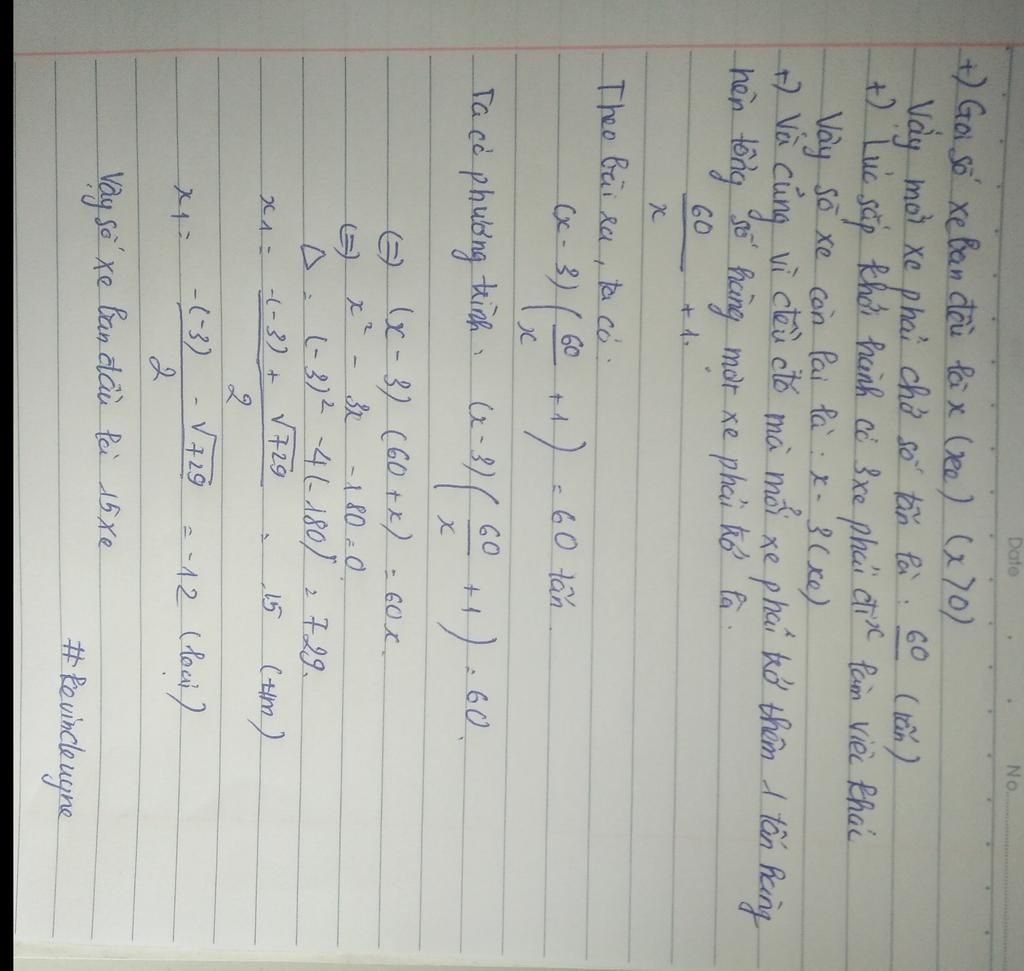 Date No.
+) Gọi số xe ban đầu là x (xe) (x>0)
Vậy mỗi xe phải chở số tấn là : 60/x (tấn)
+) Lúc sắp khởi hành có 3 xe phải đi làm việc khác
Vậy số xe còn lại là : x - 3 (xe)
+) Và cũng vì điều đó mà mỗi xe phải trở thêm 1 tấn hàng
nên tổng số hàng một xe phải trở là.
60/x + 1.
Theo bài ra, ta có :
(x - 3) (60/x + 1) = 60 tấn
Ta có phương trình : (x - 3) (60/x + 1) = 60.
(=) (x - 3) (60 + x) = 60x.
(=) x² - 3x - 180 = 0
Δ = (-3)² - 4(-180) = 729.
x1 = -(-3) + √729 / 2 = 15 (t/m)
x1 = -(-3) - √729 / 2 = -12 (loại)
Vậy số xe ban đầu là 15 xe